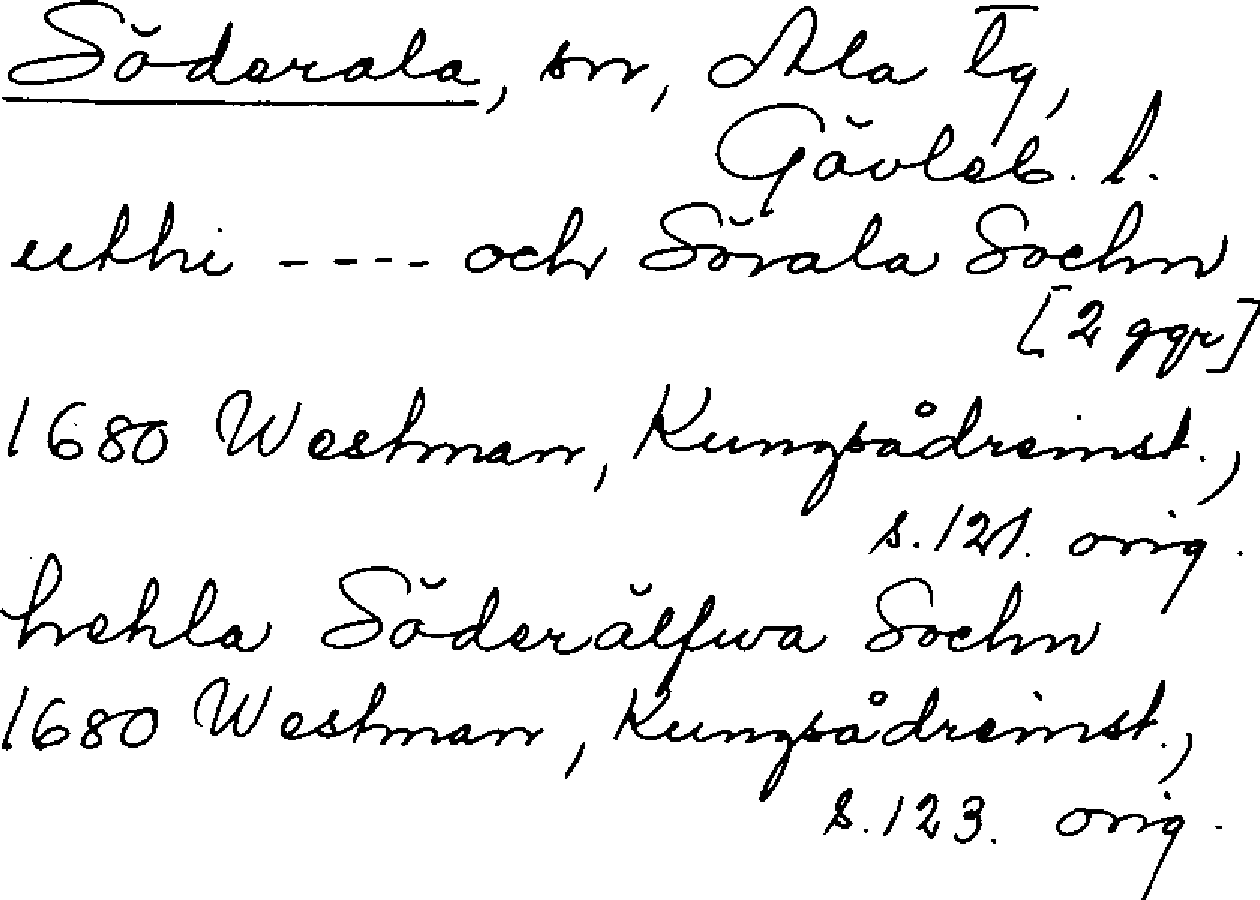 Söderala, sn, Ala tg,
Gävleb. l.
utthi ---- och Sörala Sochn
[2 ggr]
1680 Westman, Kungsådreinst.,
s. 121. orig.
hehla Söderälfwa Sochn
1680 Westman, Kungsådreinst.,
s. 123. orig.